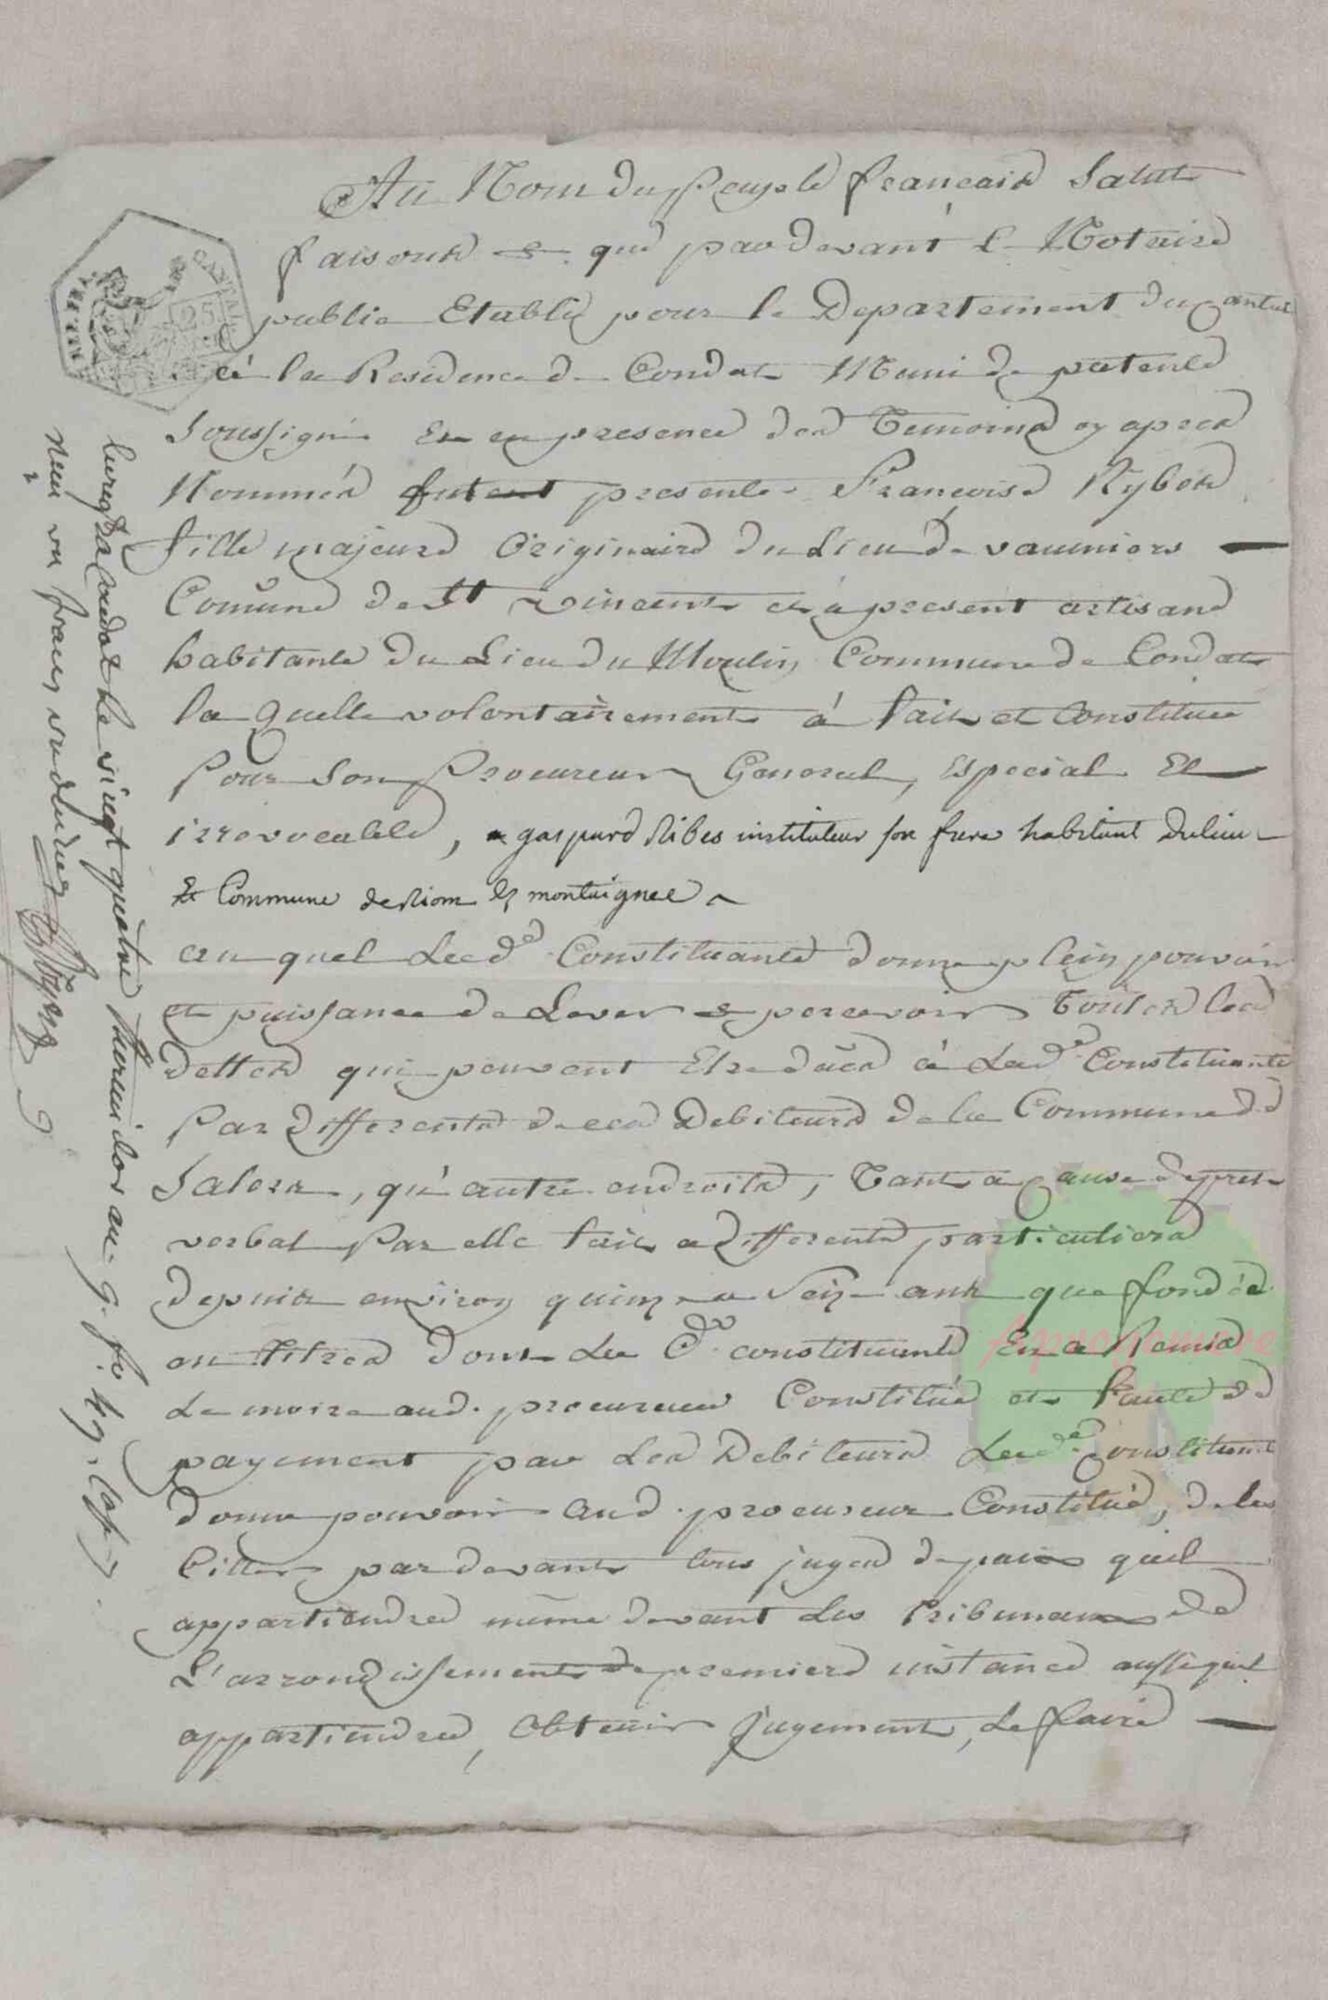 Au Nom du Peuple français Salut
faisons que pardevant le Notaire
public Etabli pour le Departement du Cantal
à la Residence de Condat Muni de patente
Soussigné Et en presence des Temoins cy apres
Nommés fut presente Françoise Rybes
fille majeure Originaire du Lieu de vaumiers
Comune de St vincent et à present artisane
habitante du Lieu du Moulin Commune de Condat
la quelle volontairement à fait et constitué
Pour son Procureur General, Especial Et
irrevocable, gaspard Ribes instituteur son frere habitant du lieu
Et Commune de Riom les montaignes
au quel Lad.e Constituante donne plein pouvoir
et puissance de Lever et percevoir Toutes les
dettes qui peuvent Etre dues à Lad.e Constituante
Par differents de ces Debiteurs de la Commune de
Salers, qu'autre endroits, Tant a cause de pret
verbal Par elle fait a differents particuliers
depuis environ quinze a Seize ans que fondée
en titres dont La d.e constituante En a Remis
Le moire aud. procureur Constitué et faute de
payement par Les Debiteurs Lad.e Constituante
donne pouvoir aud. procureur Constitué, de les
Citter pardevant tous juges de paix quil
appartiendra même devant Les tribunaux de
L'arrondissement de premiere instance aussi quil
appartiendra, Obtenir jugement, Le faire
Enreg.tré à Condat le vingt quatre thermidor an 9. f.o
reçu un franc
CANTAL
25